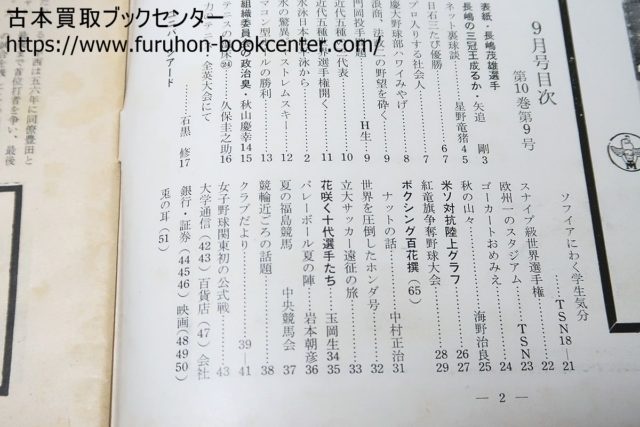 古本買取ブックセンター
https://www.furuhon-bookcenter.com/
9月号目次
第10巻第9号
表紙・長嶋茂雄選手
長嶋の三冠王成るか・矢追 剛 3
ネット裏球談……星野竜猪 4 5
日石三たび優勝……6
プロ入りする社会人……7
慶大野球部ハワイみやげ……7
浪商、法政二の野望を砕く……9
門岡投手の……題……H生…9
近代五種三代表……10
近代五種世界選手権開く……11
全日本水上・水泳から……2
水の驚異ストレムスキー……12
マコン型オールの勝利……13
組織委員の政治臭・秋山慶幸 14 15
テニスの床㉔・久保圭之助 16
カラテ・全英大会にて
石黒 修 17
ソフィアにわく学生気分
……TSN 18—21
スナイプ級世界選手権……22
欧州一のスタジアム……TSN 23
ゴーカートおめみえ……24
秋の山々……海野治良 25
米ソ対抗陸上グラフ……26 27
紅竜旗争奪野球大会……28 29
ボクシング百花撰(65)
ナットの話……中村正治 31
世界を圧倒したホンダ号……32
立大サッカー遠征の旅……33
花咲く十代選手たち……玉岡生 34 35
バレーボール夏の陣……岩本朝彦 36
夏の福島競馬……中央競馬会 37
競輪近ごろの話題……38
クラブだより……39—41
女子野球関東初の公式戦……43
大学通信(42 43)百貨店(47)会社
銀行・証券(44 45 46)映画(48 49 50)
兎の耳(51)
— 2 —
西は五六年に同僚豊田と
首位打者を争い、最後